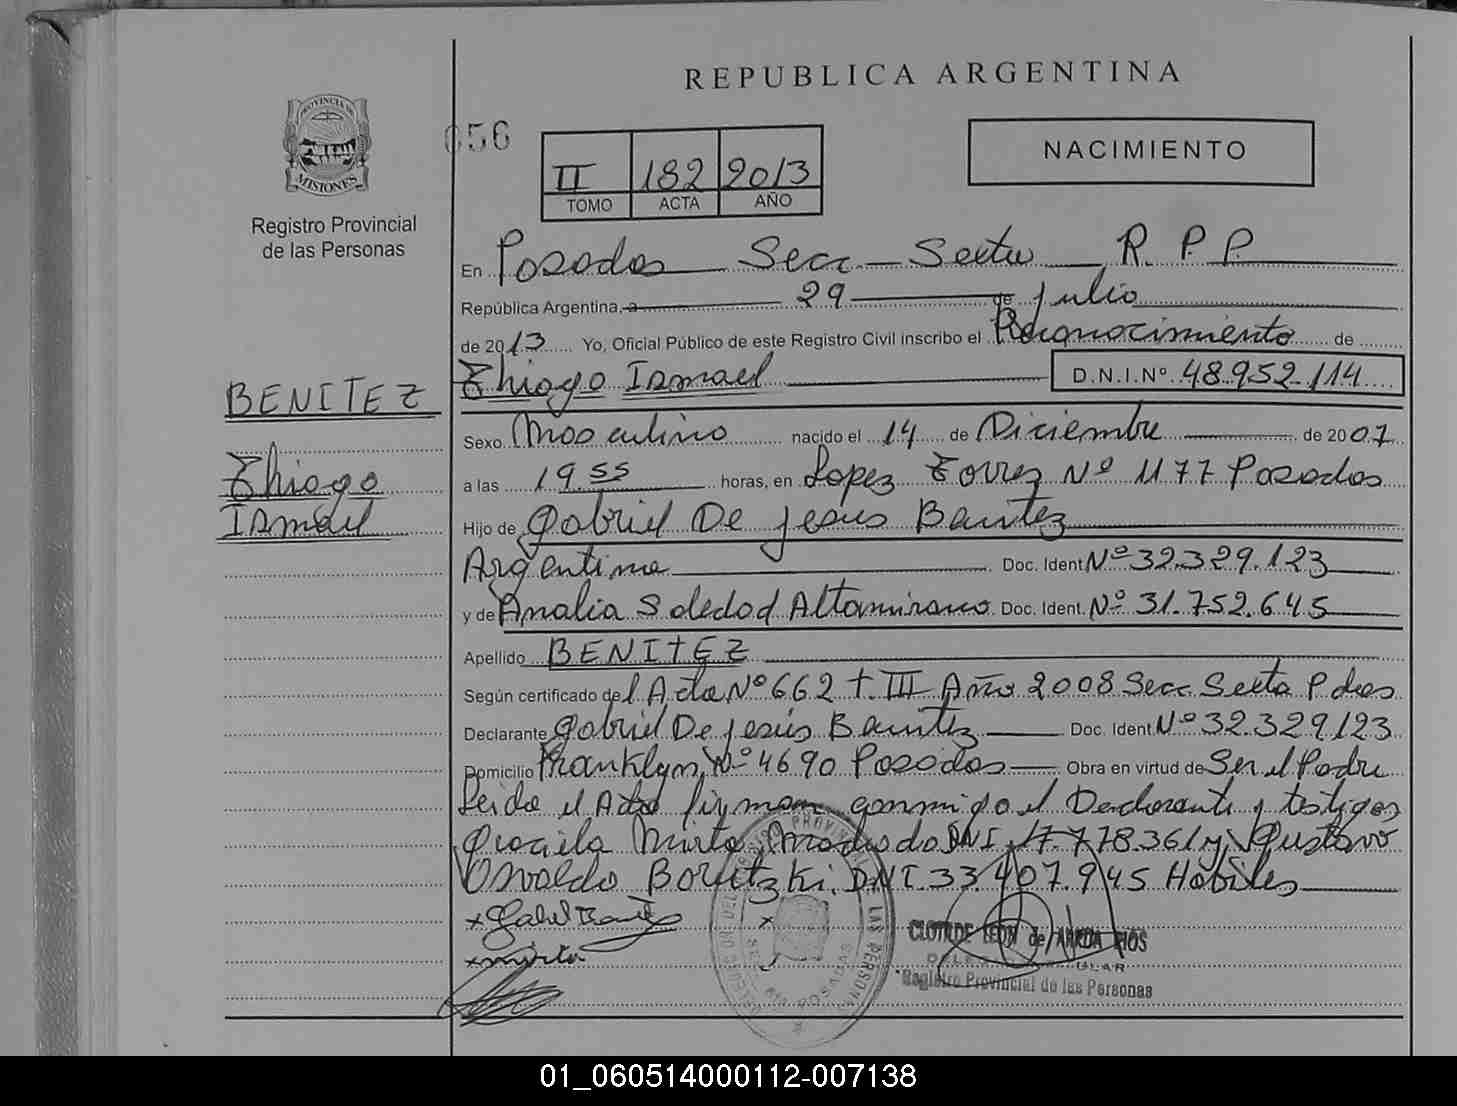 REPUBLICA ARGENTINA
PROVINCIA DE
MISIONES
Registro Provincial
de las Personas
656
II 182 2013
TOMO ACTA AÑO
NACIMIENTO
En Posadas Secc Sexta R. P. P.
República Argentina, a 29 de Julio
de 2013 Yo, Oficial Público de este Registro Civil inscribo el Reconocimiento de
Thiago Ismael D.N.I.Nº 48.952.114
BENITEZ
Thiago
Ismael
Sexo Masculino nacido el 14 de Diciembre de 2007
a las 19.55 horas, en Lopez Torres Nº 1177 Posadas
Hijo de Gabriel De Jesus Benitez
Argentina Doc. Ident Nº 32.329.123
y de Analia Soledad Altamirano Doc. Ident. Nº 31.752.645
Apellido BENITEZ
Según certificado del Acta Nº 662 t. III Año 2008 Secc Sexta Pdas
Declarante Gabriel De Jesús Benitez Doc. Ident Nº 32.329.123
Domicilio Franklyn Nº 4690 Posadas Obra en virtud de Ser el Padre
Leida el Acta firman conmigo el Declarante y testigos
Graciela Mirta DNI 17.778.361 y Gustavo
Osvaldo DNI 33.407.945 Hábiles
x Gabriel Benitez x
x mirta
CLOTILDE LEON de RIOS
Registro Provincial de las Personas
01_060514000112-007138